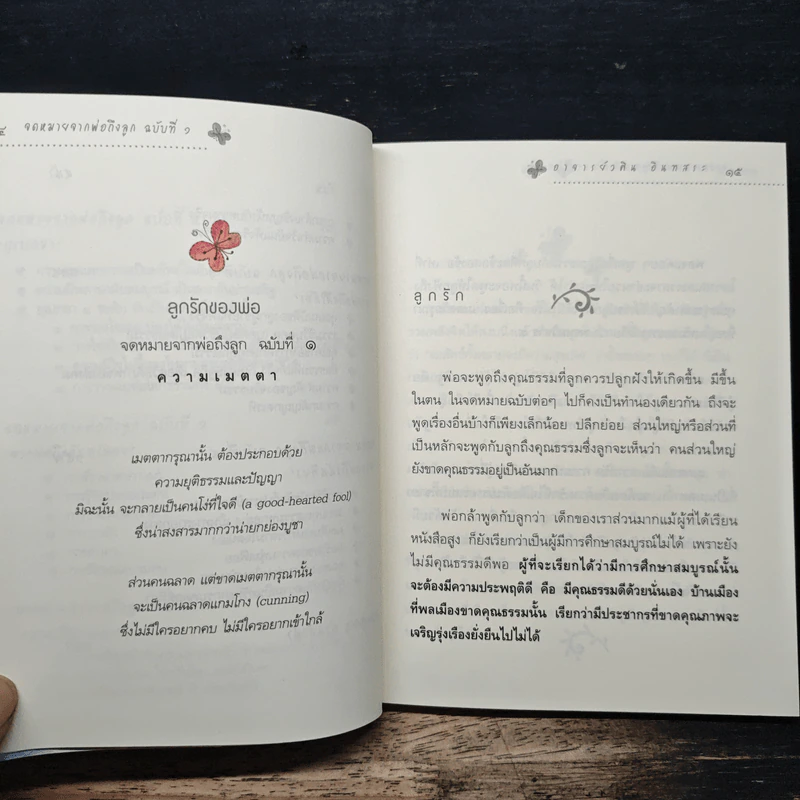 จดหมายจากพ่อถึงลูก ฉบับที่ ๑
ลูกรักของพ่อ
จดหมายจากพ่อถึงลูก ฉบับที่ ๑
ความเมตตา
เมตตากรุณานั้น ต้องประกอบด้วย
ความยุติธรรมและปัญญา
มิฉะนั้น จะกลายเป็นคนโง่ที่ใจดี (a good-hearted fool)
ซึ่งน่าสงสารมากกว่าน่ายกย่องบูชา
ส่วนคนฉลาด แต่ขาดเมตตากรุณานั้น
จะเป็นคนฉลาดแกมโกง (cunning)
ซึ่งไม่มีใครอยากคบ ไม่มีใครอยากเข้าใกล้
อาจารย์วศิน อินทสระ
๑๕
ลูกรัก
พ่อจะพูดถึงคุณธรรมที่ลูกควรปลูกฝังให้เกิดขึ้น มีขึ้น
ในตน ในจดหมายฉบับต่อๆ ไปก็คงเป็นทำนองเดียวกัน ถึงจะ
พูดเรื่องอื่นบ้างก็เพียงเล็กน้อย ปลีกย่อย ส่วนใหญ่หรือส่วนที่
เป็นหลักจะพูดกับลูกถึงคุณธรรมซึ่งลูกจะเห็นว่า คนส่วนใหญ่
ยังขาดคุณธรรมอยู่เป็นอันมาก
พ่อกล้าพูดกับลูกว่า เด็กของเราส่วนมากแม้ผู้ที่ได้เรียน
หนังสือสูง ก็ยังเรียกว่าเป็นผู้มีการศึกษาสมบูรณ์ไม่ได้ เพราะยัง
ไม่มีคุณธรรมดีพอ ผู้ที่จะเรียกได้ว่ามีการศึกษาสมบูรณ์นั้น
จะต้องมีความประพฤติดี คือ มีคุณธรรมดีด้วยนั่นเอง บ้านเมือง
ที่พลเมืองขาดคุณธรรมนั้น เรียกว่ามีประชากรที่ขาดคุณภาพจะ
เจริญรุ่งเรืองยั่งยืนไปไม่ได้